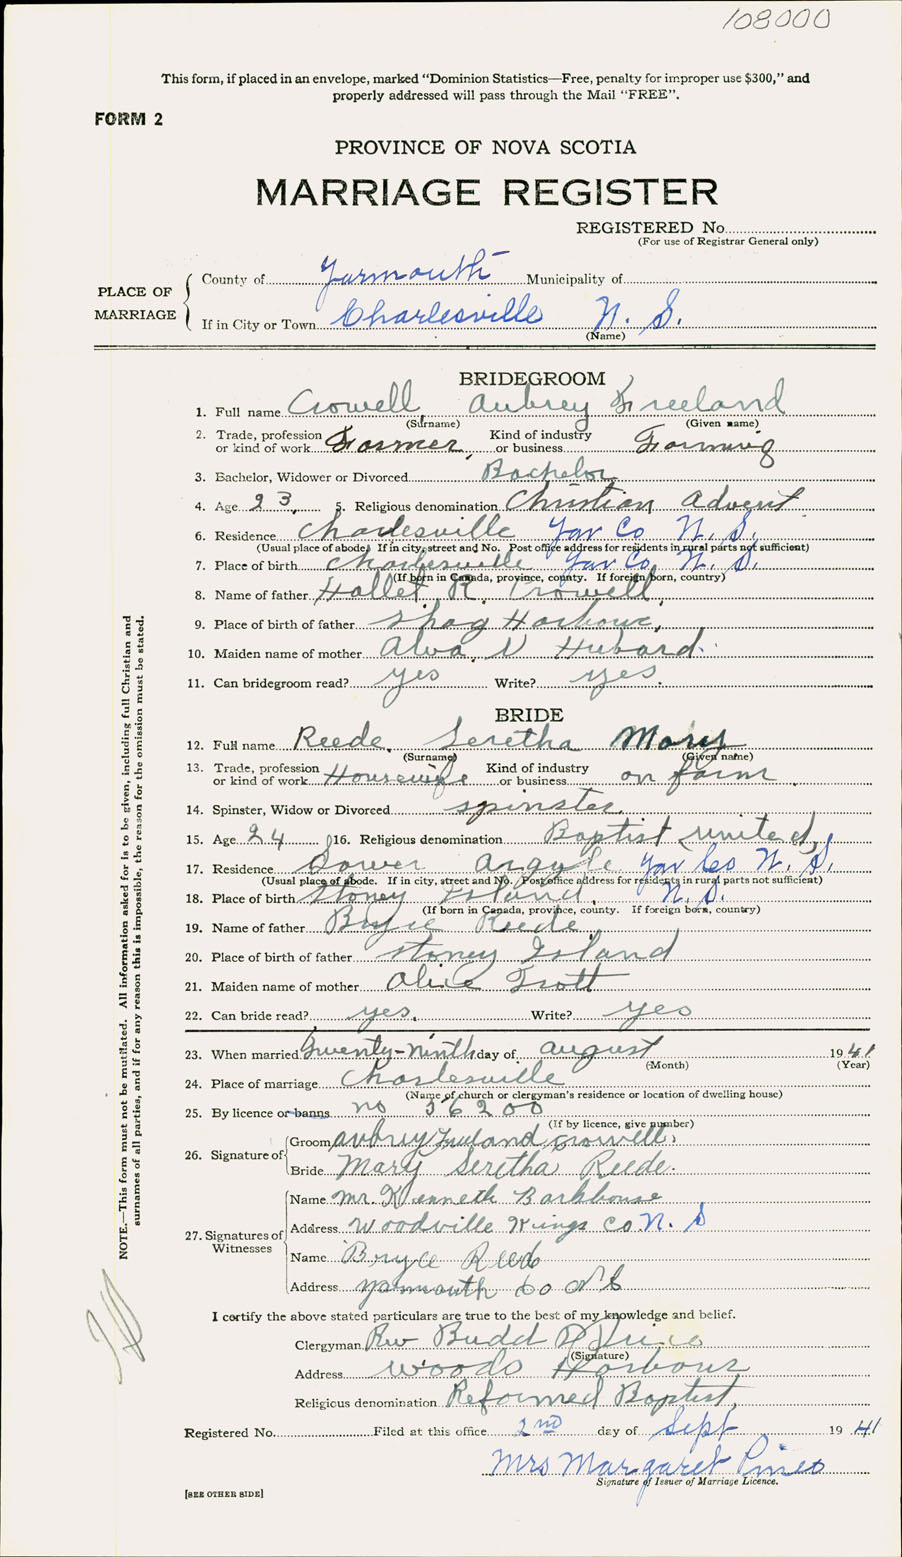 108000
This form, if placed in an envelope, marked “Dominion Statistics—Free, penalty for improper use $300,” and
properly addressed will pass through the Mail “FREE”.
FORM 2
PROVINCE OF NOVA SCOTIA
MARRIAGE REGISTER
REGISTERED No.
(For use of Registrar General only)
PLACE OF MARRIAGE
County of Yarmouth Municipality of
If in City or Town Charlesville N. S.
(Name)
BRIDEGROOM
1. Full name Crowell, Aubrey Freeland
(Surname) (Given name)
2. Trade, profession or kind of work Farmer, Kind of industry or business Farming
3. Bachelor, Widower or Divorced Bachelor
4. Age 23, 5. Religious denomination Christian Advent
6. Residence Charlesville Yar Co N. S.
(Usual place of abode. If in city, street and No. Post office address for residents in rural parts not sufficient)
7. Place of birth Charlesville Yar Co N. S.
(If born in Canada, province, county. If foreign born, country)
8. Name of father Hallet R. Crowell
9. Place of birth of father Shag Harbour,
10. Maiden name of mother Alva N Hubard
11. Can bridegroom read? yes Write? yes.
BRIDE
12. Full name Reede, Seretha Mary
(Surname) (Given name)
13. Trade, profession or kind of work Housewife Kind of industry or business on farm
14. Spinster, Widow or Divorced spinster
15. Age 24 16. Religious denomination Baptist (united)
17. Residence Lower Argyle Yar Co N. S.
(Usual place of abode. If in city, street and No. Post office address for residents in rural parts not sufficient)
18. Place of birth Stoney Island, N. S.
(If born in Canada, province, county. If foreign born, country)
19. Name of father Reede
20. Place of birth of father Stoney Island
21. Maiden name of mother Alice Trott
22. Can bride read? yes. Write? yes
23. When married Twenty-ninth day of August 1941
(Month) (Year)
24. Place of marriage Charlesville
(Name of church or clergyman's residence or location of dwelling house)
25. By licence or banns no 56200
(If by licence, give number)
26. Signature of
Groom Aubrey Freeland Crowell.
Bride Mary Seretha Reede.
27. Signatures of Witnesses
Name Mr. Kenneth Barkhouse
Address Woodville Kings Co. N. S
Name Bryce Reede
Address Yarmouth Co N S
I certify the above stated particulars are true to the best of my knowledge and belief.
Clergyman Rev Budd Price
(Signature)
Address Woods Harbour
Religious denomination Reformed Baptist,
Registered No. Filed at this office 2nd day of Sept 1941
Mrs Margaret Pineo
Signature of Issuer of Marriage Licence.
[SEE OTHER SIDE]
NOTE.—This form must not be mutilated. All information asked for is to be given, including full Christian and
surnames of all parties, and if for any reason this is impossible, the reason for the omission must be stated.